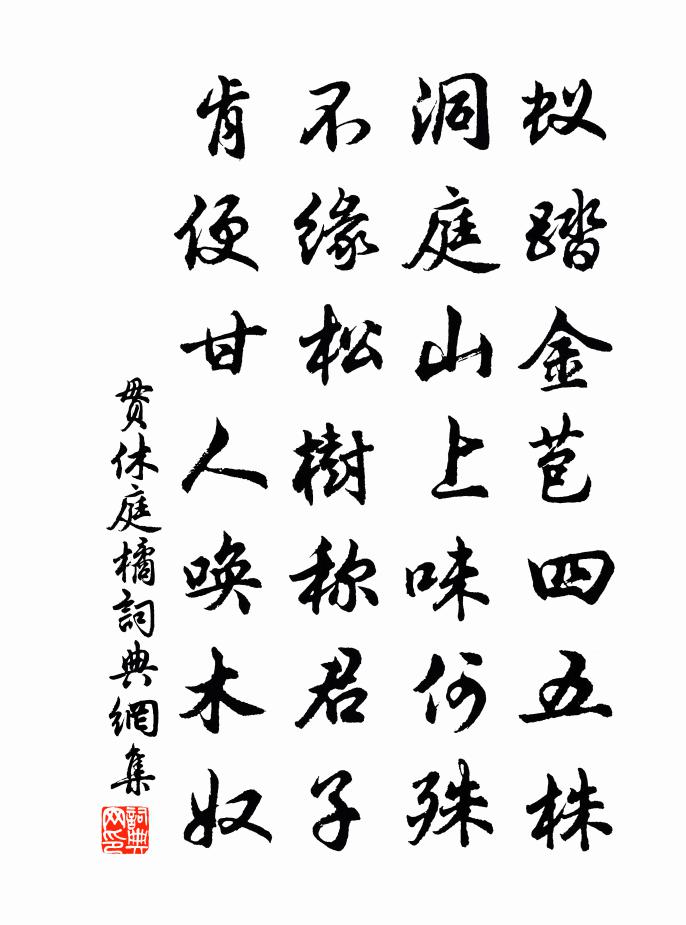 蚁踏金苞四五株
洞庭山上味何殊
不缘松树称君子
肯便甘人唤木奴
贯休庭橘詞典網集
詞典网印